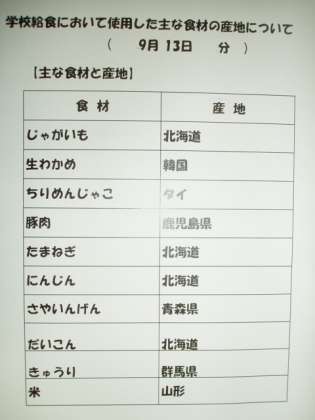 学校給食において使用した主な食材の産地について
（　9月 13日　分　）
【主な食材と産地】
食 材　産 地
じゃがいも　北海道
生わかめ　韓国
ちりめんじゃこ　タイ
豚肉　鹿児島県
たまねぎ　北海道
にんじん　北海道
さやいんげん　青森県
だいこん　北海道
きゅうり　群馬県
米　山形